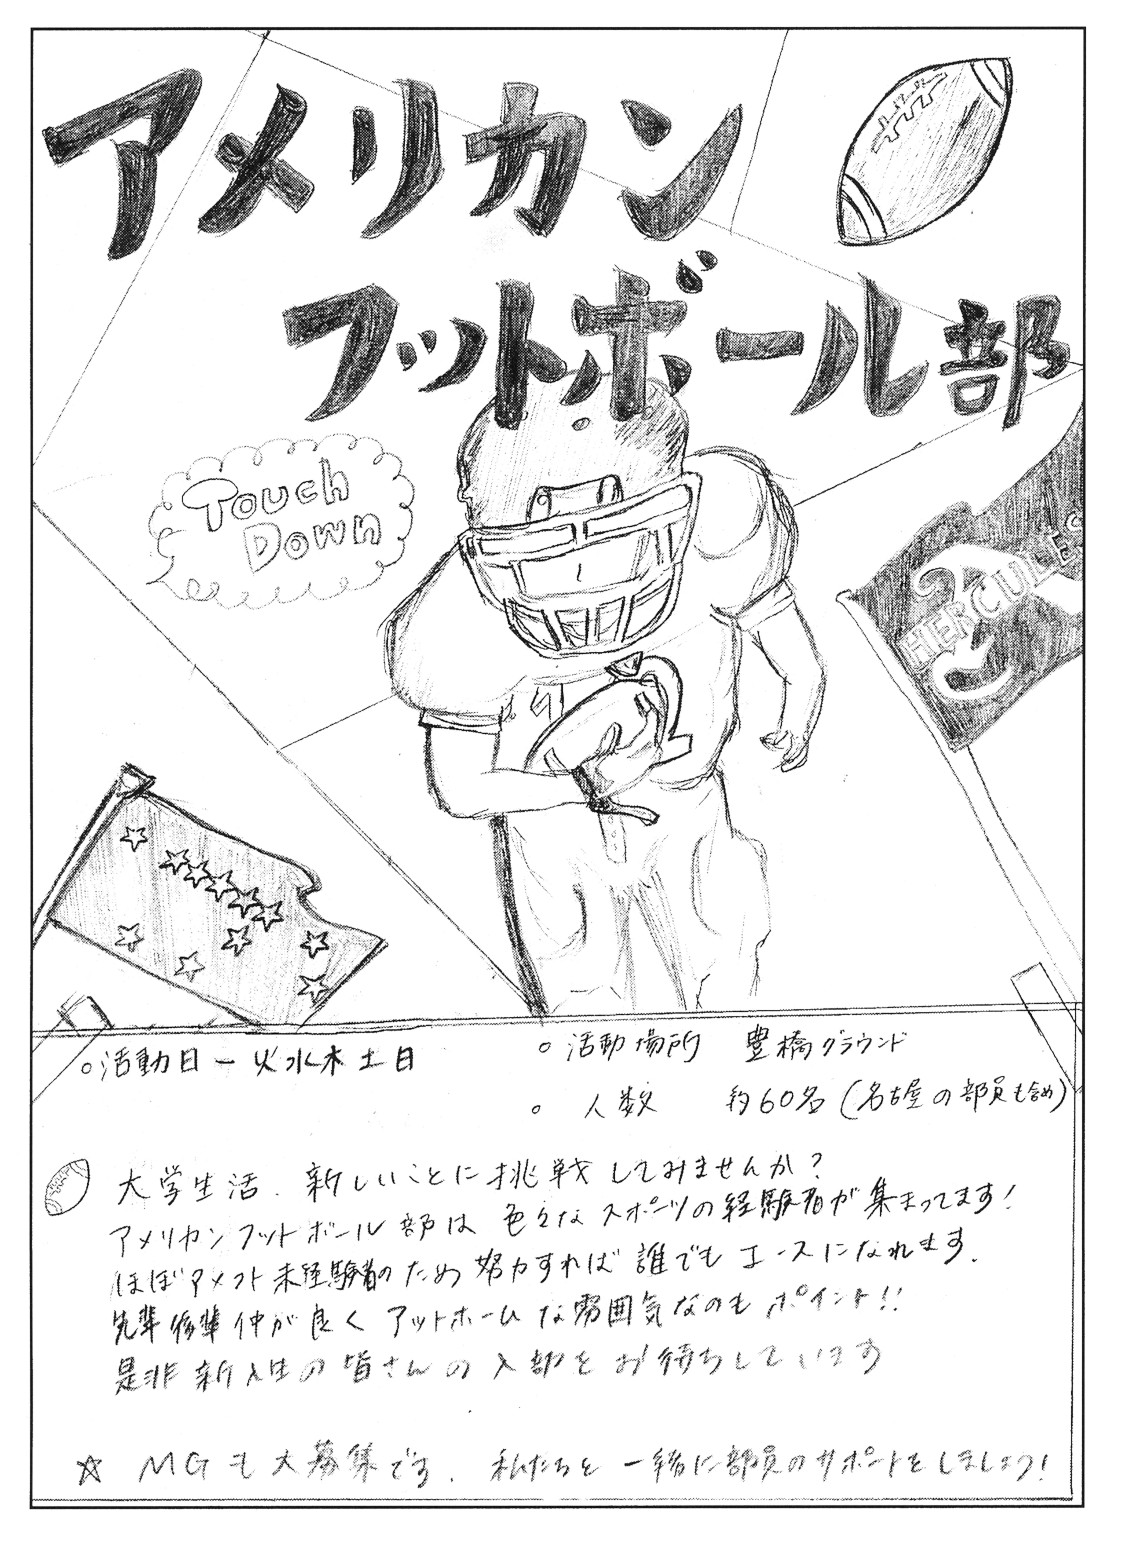 アメリカン
フットボール部
Touch
Down
HERCULES
○活動日ー火水木土日
○活動場所 豊橋グラウンド
○人数 約60名(名古屋の部員も含め)
大学生活、新しいことに挑戦してみませんか?
アメリカンフットボール部は色々なスポーツの経験者が集まってます!
ほぼアメフト未経験者のため努力すれば誰でもエースになれます。
先輩後輩仲が良くアットホームな雰囲気なのもポイント!!
是非新入生の皆さんの入部をお待ちしています
☆ MGも大募集です。私たちと一緒に部員のサポートをしましょう!